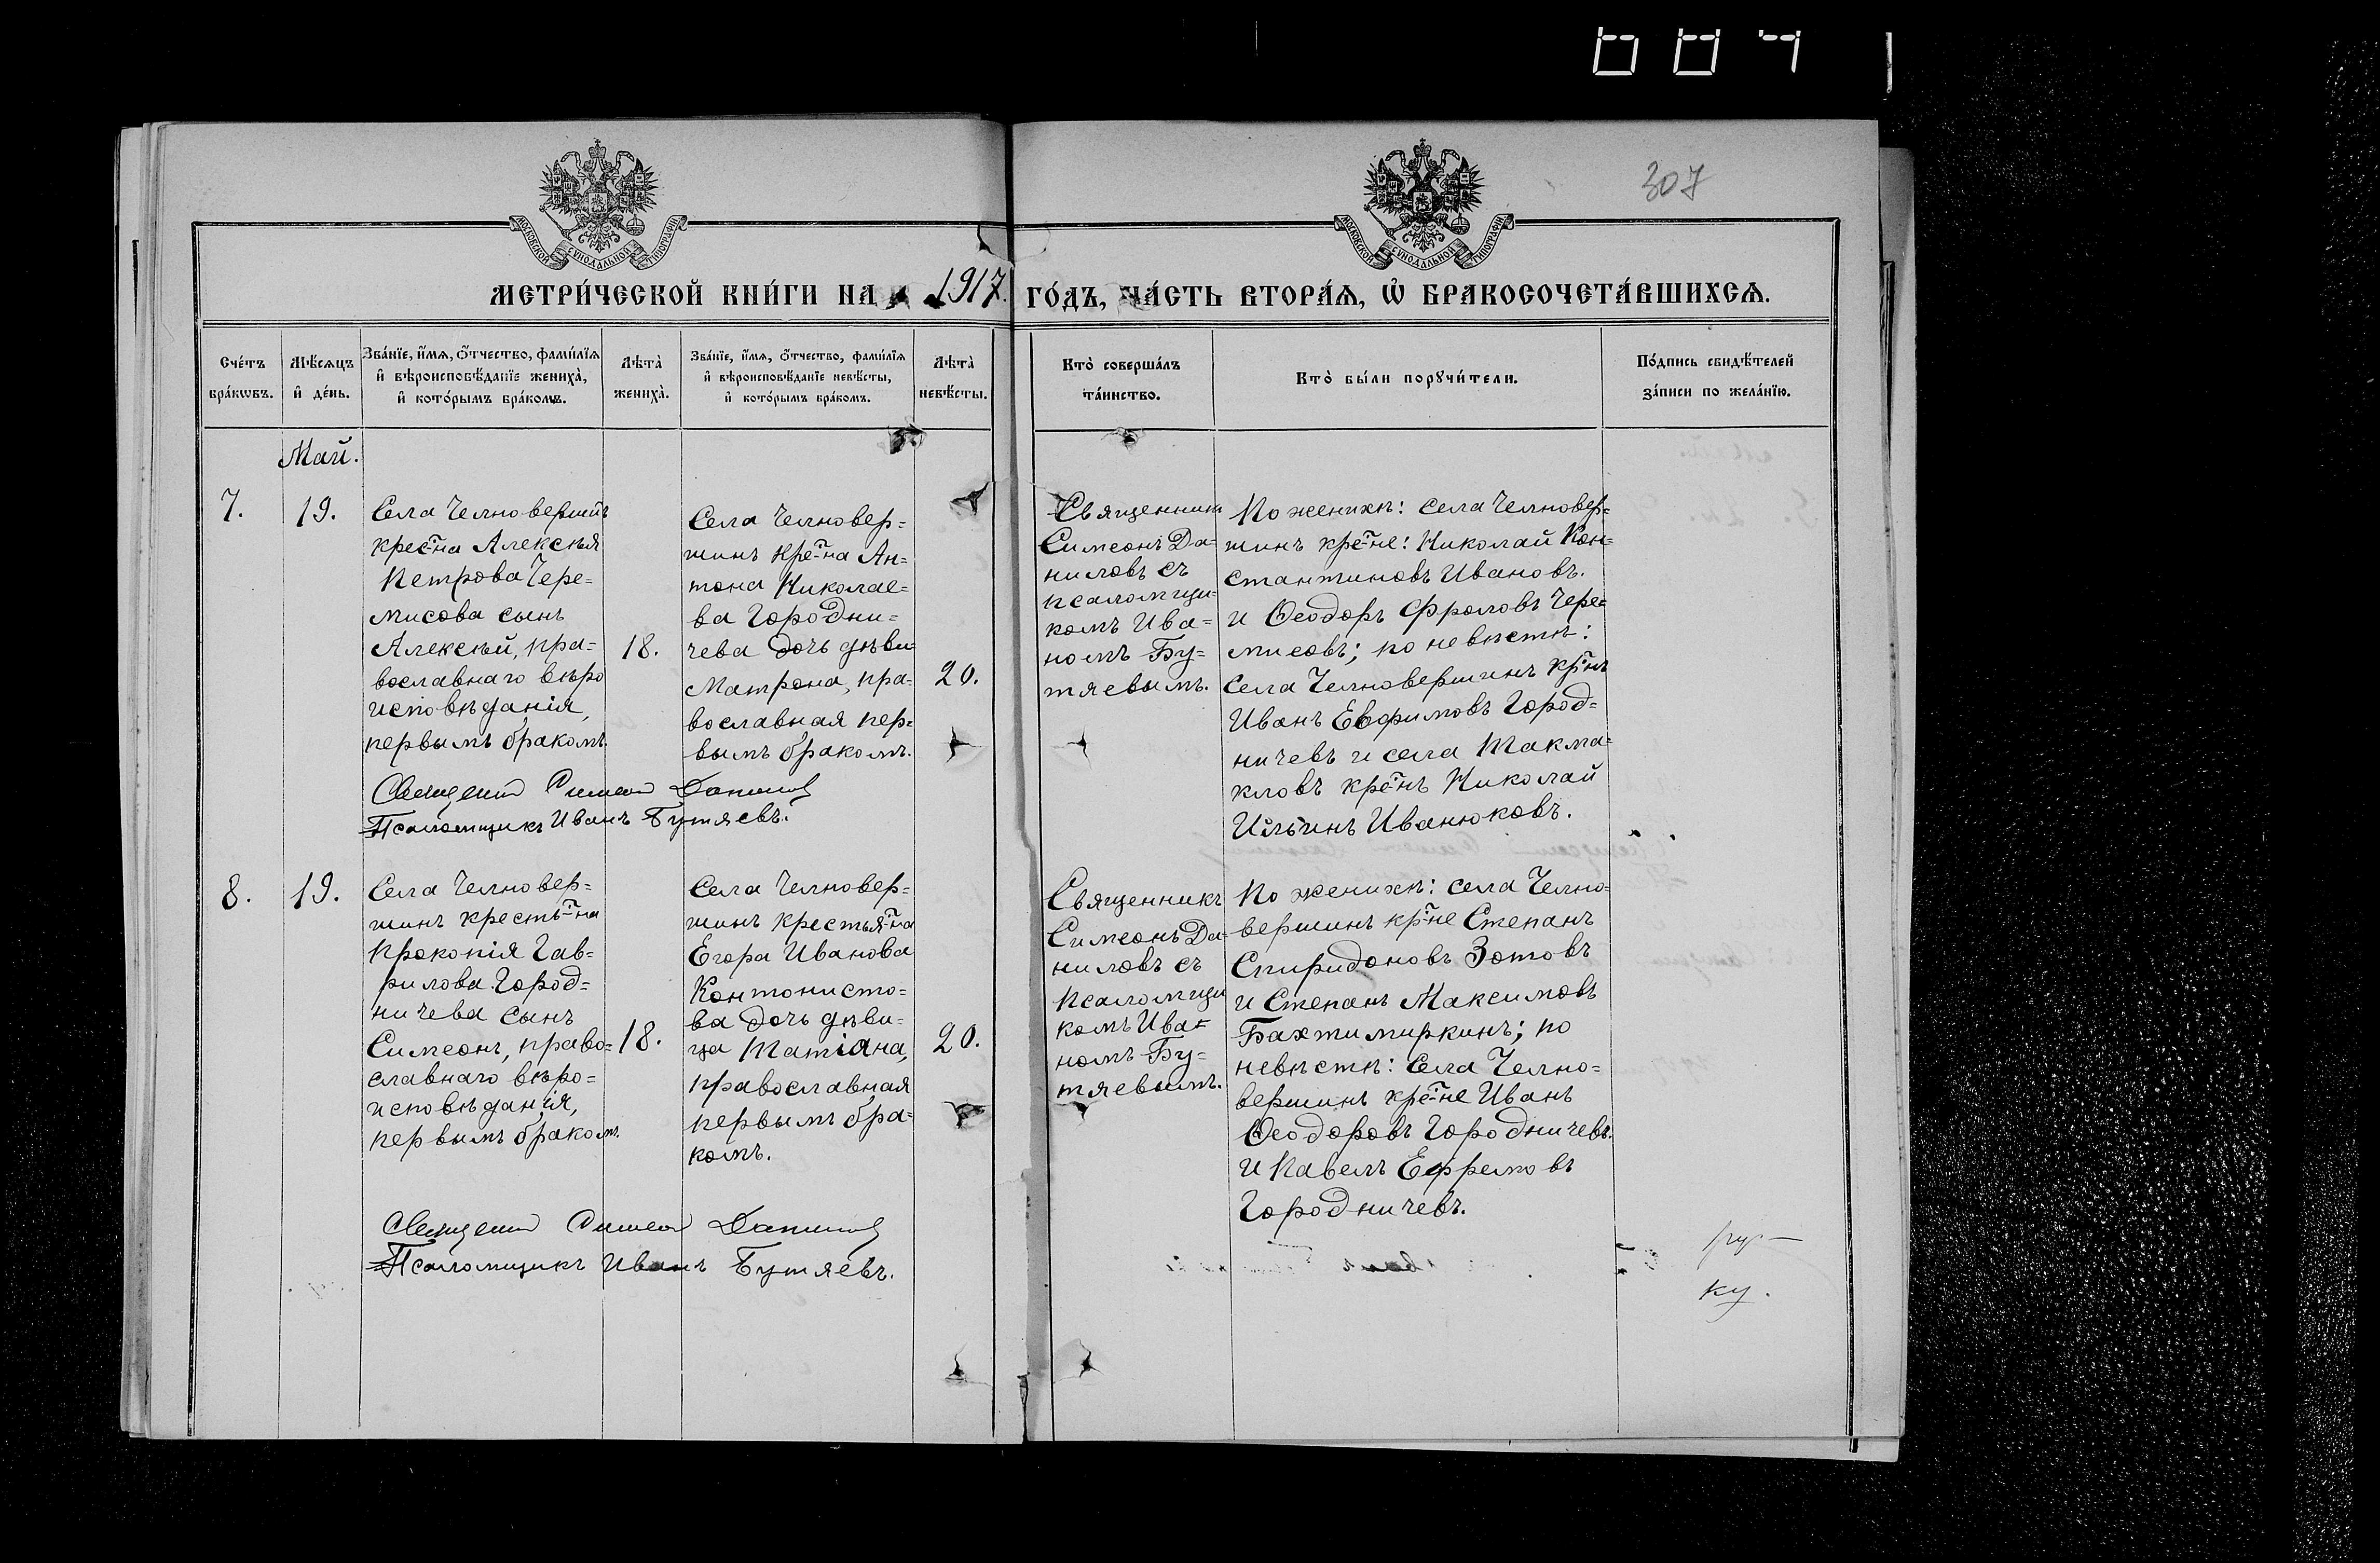 307
МОСКОВСКОЙ СѴНОДАЛЬНОЙ ТИПОГРАФІИ
МОСКОВСКОЙ СѴНОДАЛЬНОЙ ТИПОГРАФІИ
МЕТРИ́ЧЕСКОЙ КНИ́ГИ НА 1917. ГО́ДЪ, ЧА́СТЬ ВТОРА́Ѧ, Ѡ҆ БРАКОСОЧЕТА́ВШИХСѦ.
Сче́тъ
бра́кѡвъ.
Мѣ́сѧцъ
и҆ де́нь.
Зва́нїе, и҆́мѧ, ѻ҆́тчество, фами́лїѧ
и҆ вѣроисповѣ́данїе жениха̀,
и҆ кото́рымъ бра́комъ.
Лѣта̀
жениха̀.
Зва́нїе, и҆́мѧ, ѻ҆́тчество, фами́лїѧ
и҆ вѣроисповѣ́данїе невѣ́сты,
и҆ кото́рымъ бра́комъ.
Лѣта̀
невѣ́сты.
Кто̀ соверша́лъ
та́инство.
Кто̀ бы́ли порꙋчи́тели.
По́дпись свидѣ́телей
за́писи по жела́нїю.
Май.
7.
19.
Села Челновершинъ
крест-на Алексѣя
Петрова Чере=
мисова сынъ
Алексѣй, пра=
вославнаго вѣро
исповѣданія,
первымъ бракомъ.
18.
Села Челновер=
шинъ кре-т-на Ан=
тона Николае=
ва Городни=
чева дочь дѣви
Матрона, пра=
вославная пер=
вымъ бракомъ.
20.
Священникъ
Симеонъ Да=
ниловъ съ
псаломщи=
комъ Ива=
номъ Бу=
тяевымъ.
По женихѣ: села Челновер=
шинъ кре-т-не: Николай Кон=
стантиновъ Ивановъ.
и Ѳеодоръ Фроловъ Чере=
мисовъ; по невѣстѣ:
Села Челновершинъ кр-нъ
Иванъ Евфимовъ Город=
ничевъ и села Токма=
кловъ кре-нъ Николай
Ильинъ Иванюковъ.
Священникъ Симеонъ Даниловъ
Псаломщикъ Иванъ Бутяевъ.
8.
19.
Села Челновер=
шинъ крестья-на
Прокопія Гав=
рилова Город=
ничева сынъ
Симеонъ, право=
славнаго вѣро=
исповѣданія,
первымъ бракомъ.
18.
Села Челновер=
шинъ крестья-на
Егора Иванова
Контонисто=
ва дочь дѣви=
ца Татіана,
православная
первымъ бра=
комъ.
20.
Священникъ
Симеонъ Да=
ниловъ съ
псаломщи
комъ Ива=
номъ Бу=
тяевымъ.
По женихѣ: села Челно=
вершинъ кр-не Степанъ
Спиридоновъ Зотовъ
и Степанъ Максимовъ
Бахтимиркинъ; по
невѣстѣ: Села Челно=
вершинъ кре-не Иванъ
Ѳеодоровъ Городничевъ.
и Павелъ Ефремовъ
Городничевъ.
Священникъ Симеонъ Даниловъ
Псаломщикъ Иванъ Бутяевъ.
ру-
ку.